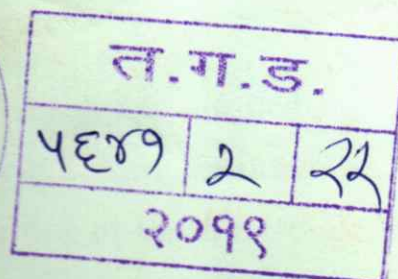 त.ग.ड.
५६४१ २ २२
२०१९